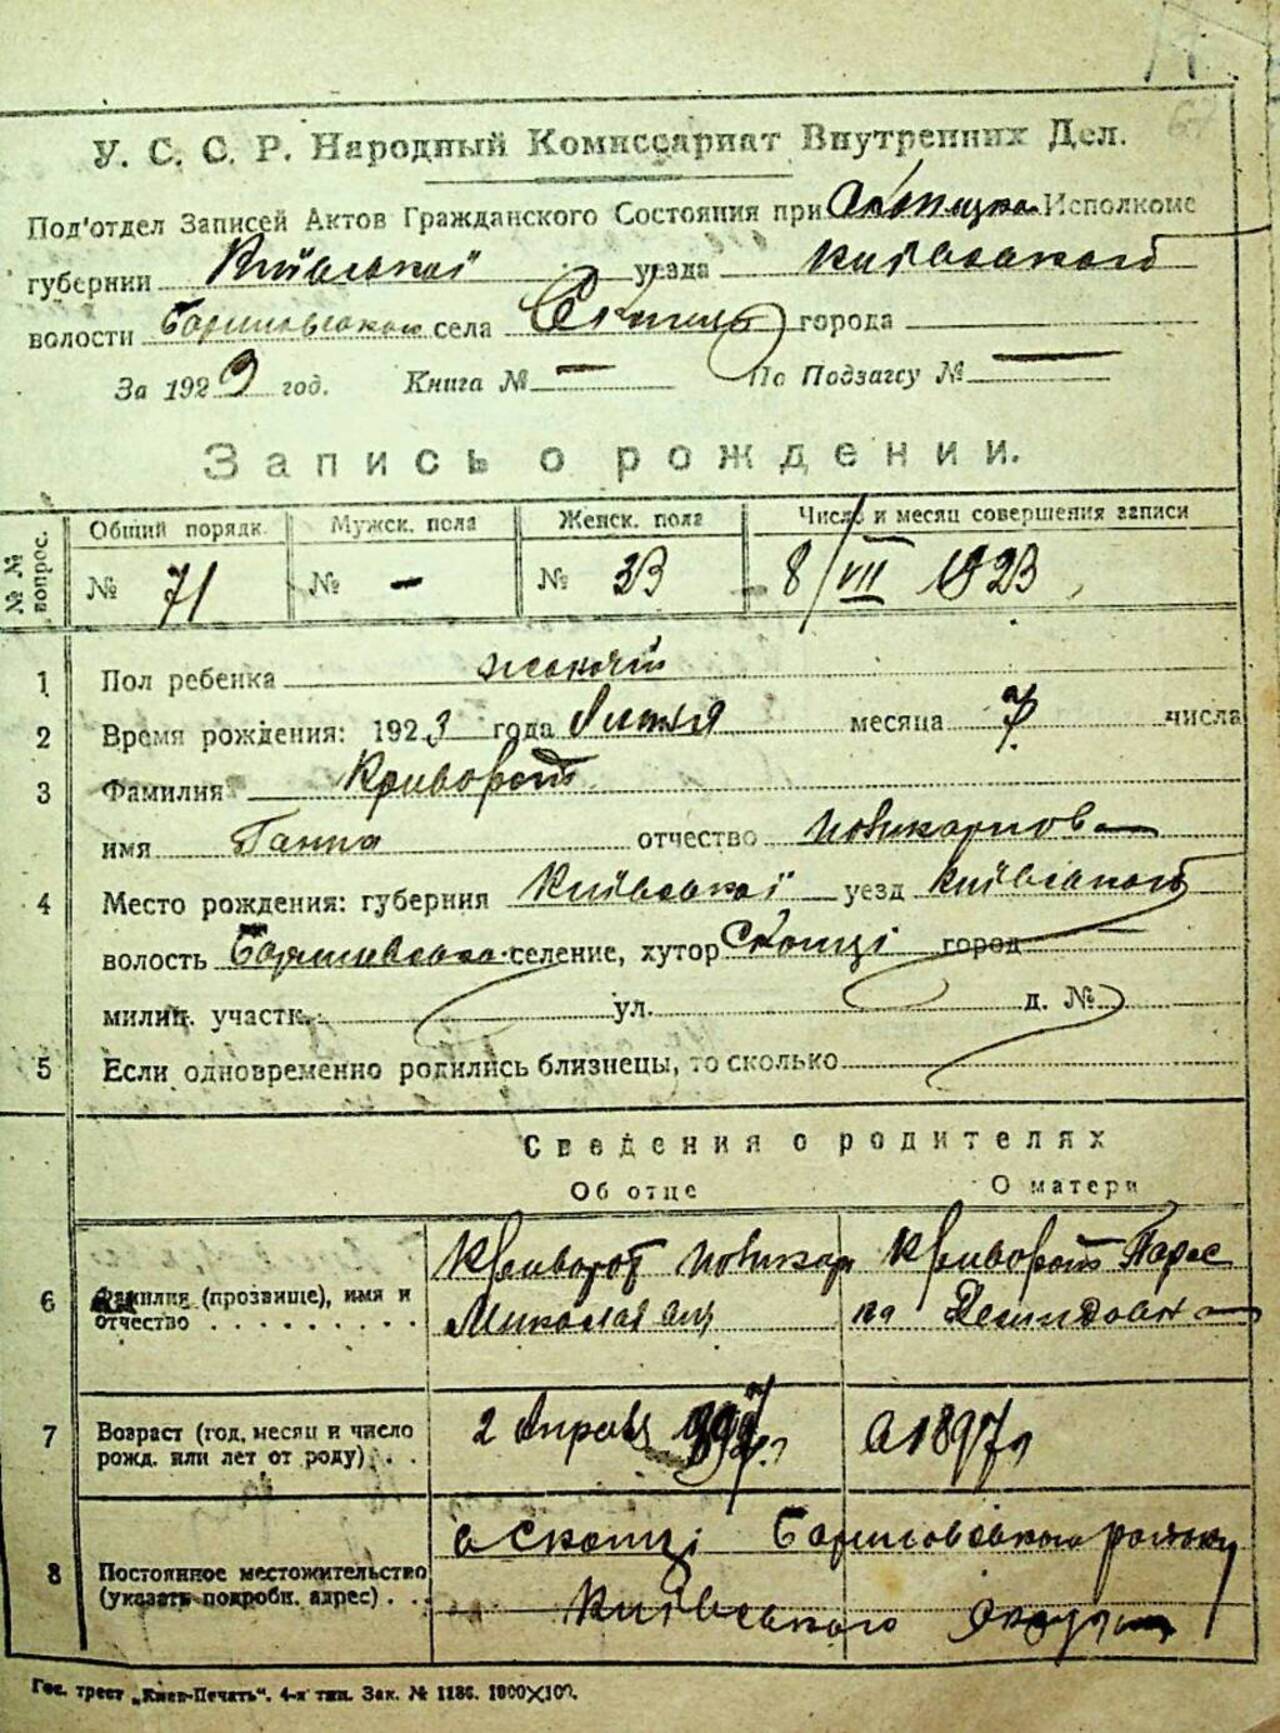 67
У. С. С. Р. Народный Комиссариат Внутренних Дел.
Под'отдел Записей Актов Гражданского Состояния при Исполкоме
губернии Київської уезда київського
волости села города
За 1923 год. Книга № — По Подзагсу № —
Запись о рождении.
№ № вопрос. Общий порядк. Мужск. пола Женск. пола Число и месяц совершения записи
№ 71 № — № 33 8/VII 1923
1 Пол ребенка жіночій
2 Время рождения: 1923 года Липня месяца 7 числа
3 Фамилия Криворот
имя Ганна отчество
4 Место рождения: губерния Київської уезд київського
волость селение, хутор Скопці город
милиц. участк. ул. д. №
5 Если одновременно родились близнецы, то сколько
Сведения о родителях
Об отце О матери
6 Фамилия (прозвище), имя и отчество Криворот Криворот Парас
Миколаєвич ка Демидовна
7 Возраст (год, месяц и число рожд. или лет от роду) 2 Априля 1897
8 Постоянное местожительство (указать подробн. адрес) с Скопці району
Київського округи
Гос. трест „Киев-Печать“. 4-я тип. Зак. № 1186. 1000×100.